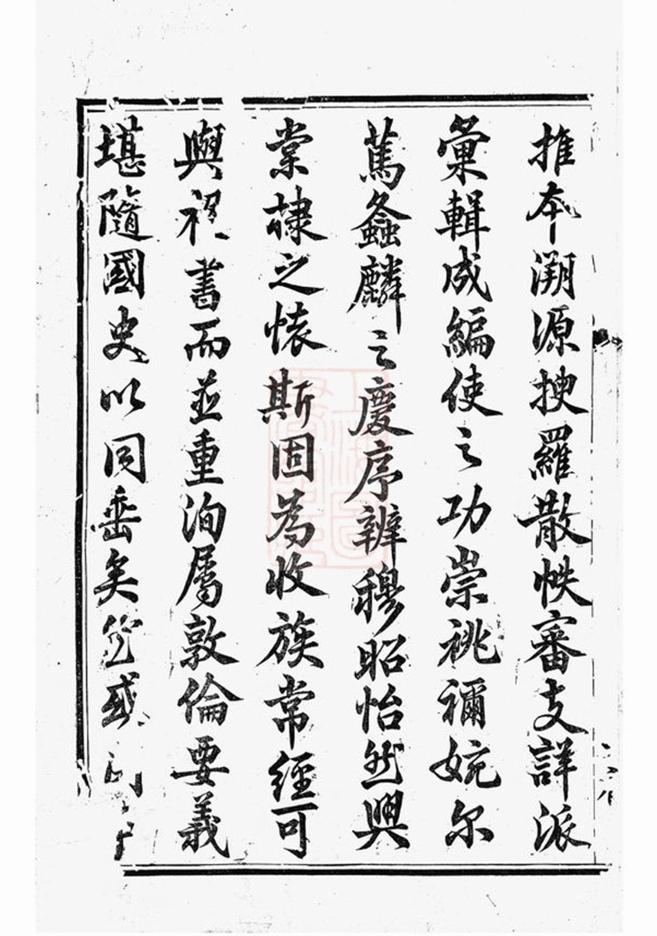 推本溯源搜羅散帙審支詳派
彙輯成編使之功崇祧禰婉尔
篤螽麟之慶序辨穆昭怡然興
棠棣之懐斯固為收族常經可
與禮書而並重洵属敦倫要義
堪隨國史以同垂矣㒰或